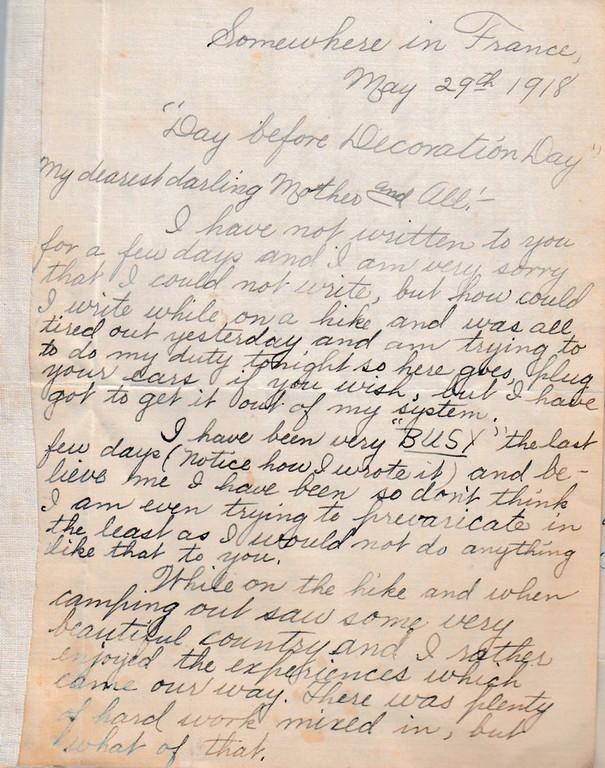 Somewhere in France,
May 29th 1918
"Day before Decoration Day"
My dearest darling Mother and All:-
I have not written to you
for a few days and I am very sorry
that I could not write, but how could
I write while on a hike, and was all
tired out yesterday and am trying to
to do my duty tonight so here goes, plug
your ears if you wish, but I have
got to get it out of my system.
I have been very "BUSY" the last
few days (notice how I wrote it) and be-
lieve me I have been so don't think
I am even trying to prevaricate in
the least as I would not do anything
like that to you.
While on the hike and when
camping out saw some very
beautiful country and I rather
enjoyed the experiences which
came our way. There was plenty
of hard work mixed in, but
what of that.